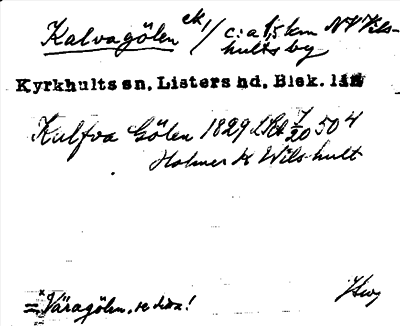 Kalvagölen ek/ c:a 1,5 km NV Vils-
hults by
Kyrkhults sn, Listers hd, Blek. län
Kalfva Gölen 1829 LSkt 7/20 504
Holmer K Wilshult
= Väragölen, se dva!